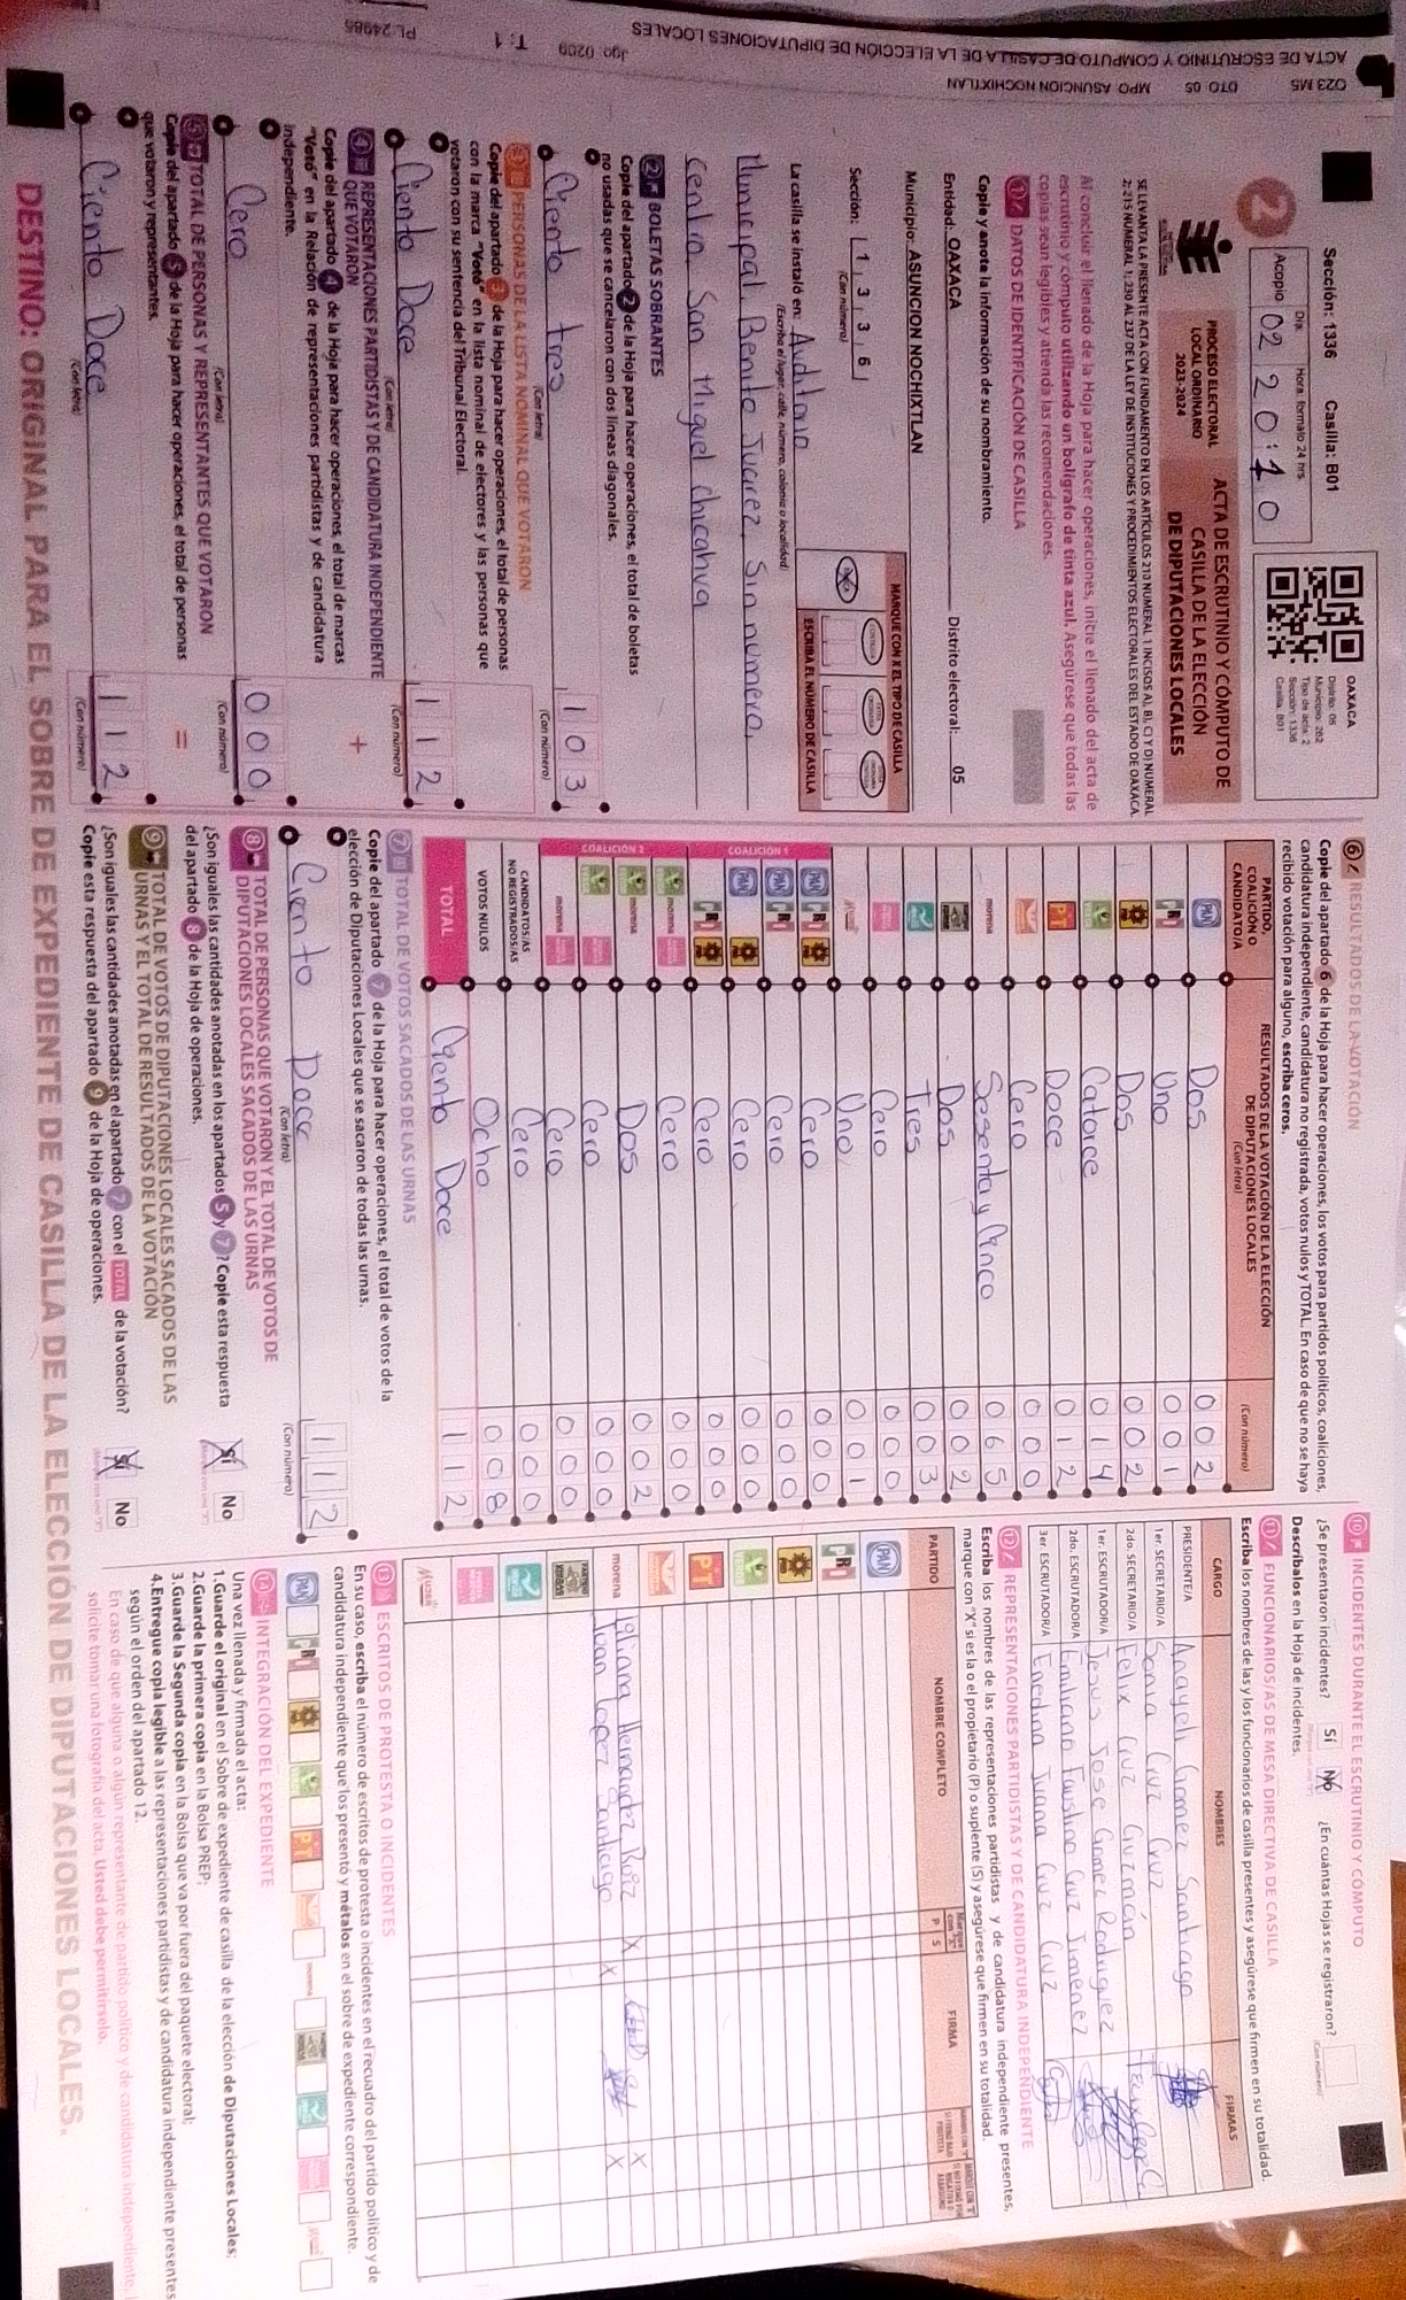 Sección: 1336 Casilla: B01
Día: Hora: formato 24 hrs
2 Acopio 02 20:10
OAXACA
Distrito: 05
Municipio: 262
Tipo de acta: 2
Sección: 1336
Casilla: B01
PROCESO ELECTORAL
LOCAL ORDINARIO
2023-2024
ACTA DE ESCRUTINIO Y CÓMPUTO DE
CASILLA DE LA ELECCIÓN
DE DIPUTACIONES LOCALES
SE LEVANTA LA PRESENTE ACTA CON FUNDAMENTO EN LOS ARTÍCULOS 213 NUMERAL 1 INCISOS A), B), C) Y D) NUMERAL
2; 215 NUMERAL 1; 230 AL 237 DE LA LEY DE INSTITUCIONES Y PROCEDIMIENTOS ELECTORALES DEL ESTADO DE OAXACA.
Al concluir el llenado de la Hoja para hacer operaciones, inicie el llenado del acta de
escrutinio y cómputo utilizando un bolígrafo de tinta azul. Asegúrese que todas las
copias sean legibles y atienda las recomendaciones.
1 DATOS DE IDENTIFICACIÓN DE CASILLA
Copie y anote la información de su nombramiento.
Entidad: OAXACA Distrito electoral: 05
Municipio: ASUNCION NOCHIXTLAN
Sección: 1 3 3 6
(Con número)
MARQUE CON X EL TIPO DE CASILLA
ESCRIBA EL NÚMERO DE CASILLA
La casilla se instaló en: Auditorio
(Escriba el lugar, calle, número, colonia o localidad)
Municipal, Benito Juarez, Sin numero,
Centro, San Miguel Chicahua
2 BOLETAS SOBRANTES
Copie del apartado 2 de la Hoja para hacer operaciones, el total de boletas
no usadas que se cancelaron con dos líneas diagonales.
Ciento tres 1 0 3
(Con letra) (Con número)
3 PERSONAS DE LA LISTA NOMINAL QUE VOTARON
Copie del apartado 3 de la Hoja para hacer operaciones, el total de personas
con la marca "Votó" en la lista nominal de electores y las personas que
votaron con su sentencia del Tribunal Electoral.
Ciento Doce 1 1 2
(Con letra) (Con número)
4 REPRESENTACIONES PARTIDISTAS Y DE CANDIDATURA INDEPENDIENTE
QUE VOTARON +
Copie del apartado 4 de la Hoja para hacer operaciones, el total de marcas
"Votó" en la Relación de representaciones partidistas y de candidatura
independiente.
Cero 0 0 0
(Con letra) (Con número)
5 TOTAL DE PERSONAS Y REPRESENTANTES QUE VOTARON
Copie del apartado 5 de la Hoja para hacer operaciones, el total de personas
que votaron y representantes. =
Ciento Doce 1 1 2
(Con letra) (Con número)
6 RESULTADOS DE LA VOTACIÓN
Copie del apartado 6 de la Hoja para hacer operaciones, los votos para partidos políticos, coaliciones,
candidatura independiente, candidatura no registrada, votos nulos y TOTAL. En caso de que no se haya
recibido votación para alguno, escriba ceros.
PARTIDO,
COALICIÓN O
CANDIDATO/A
RESULTADOS DE LA VOTACIÓN DE LA ELECCIÓN
DE DIPUTACIONES LOCALES
(Con letra) (Con número)
PAN Dos 0 0 2
PRI Uno 0 0 1
PRD Dos 0 0 2
VERDE Catorce 0 1 4
PT Doce 0 1 2
Cero 0 0 0
morena Sesenta y Cinco 0 6 5
Dos 0 0 2
Tres 0 0 3
Cero 0 0 0
Mujer Uno 0 0 1
COALICIÓN 1
PAN PRI PRD Cero 0 0 0
PAN PRI Cero 0 0 0
PAN PRD Cero 0 0 0
PRI PRD Cero 0 0 0
COALICIÓN 2
VERDE morena Cero 0 0 0
VERDE morena Dos 0 0 2
VERDE Cero 0 0 0
morena Cero 0 0 0
CANDIDATOS/AS
NO REGISTRADOS/AS Cero 0 0 0
VOTOS NULOS Ocho 0 0 8
TOTAL Ciento Doce 1 1 2
7 TOTAL DE VOTOS SACADOS DE LAS URNAS
Copie del apartado 7 de la Hoja para hacer operaciones, el total de votos de la
elección de Diputaciones Locales que se sacaron de todas las urnas.
Ciento Doce 1 1 2
(Con letra) (Con número)
8 TOTAL DE PERSONAS QUE VOTARON Y EL TOTAL DE VOTOS DE
DIPUTACIONES LOCALES SACADOS DE LAS URNAS
¿Son iguales las cantidades anotadas en los apartados 5 y 7? Copie esta respuesta
del apartado 8 de la Hoja de operaciones.
Sí No
9 TOTAL DE VOTOS DE DIPUTACIONES LOCALES SACADOS DE LAS
URNAS Y EL TOTAL DE RESULTADOS DE LA VOTACIÓN
¿Son iguales las cantidades anotadas en el apartado 7 con el TOTAL de la votación?
Copie esta respuesta del apartado 9 de la Hoja de operaciones.
Sí No
10 INCIDENTES DURANTE EL ESCRUTINIO Y CÓMPUTO
¿Se presentaron incidentes? Sí No ¿En cuántas Hojas se registraron?
(Con número)
Descríbalos en la Hoja de incidentes.
11 FUNCIONARIOS/AS DE MESA DIRECTIVA DE CASILLA
Escriba los nombres de las y los funcionarios de casilla presentes y asegúrese que firmen en su totalidad.
CARGO NOMBRES FIRMAS
PRESIDENTE/A Anayeli Gomez Santiago
1er. SECRETARIO/A Sonia Cruz Cruz
2do. SECRETARIO/A Felix Cruz Guzmán
1er. ESCRUTADOR/A Jesus Jose Gomez Rodriguez
2do. ESCRUTADOR/A Emiliano Faustino Cruz Jimenez
3er. ESCRUTADOR/A Enedina Juana Cruz Cruz
12 REPRESENTACIONES PARTIDISTAS Y DE CANDIDATURA INDEPENDIENTE
Escriba los nombres de las representaciones partidistas y de candidatura independiente presentes,
marque con "X" si es la o el propietario (P) o suplente (S) y asegúrese que firmen en su totalidad.
PARTIDO NOMBRE COMPLETO P S FIRMA
PAN
PRI
PRD
VERDE
PT
morena Iliana Hernandez Ruiz X X
Juan Lopez Santiago X X
Mujer
13 ESCRITOS DE PROTESTA O INCIDENTES
En su caso, escriba el número de escritos de protesta o incidentes en el recuadro del partido político y de
candidatura independiente que los presentó y métalos en el sobre de expediente correspondiente.
PAN PRI PRD VERDE PT morena
14 INTEGRACIÓN DEL EXPEDIENTE
Una vez llenada y firmada el acta:
1.Guarde el original en el Sobre de expediente de casilla de la elección de Diputaciones Locales;
2.Guarde la primera copia en la Bolsa PREP;
3.Guarde la Segunda copia en la Bolsa que va por fuera del paquete electoral;
4.Entregue copia legible a las representaciones partidistas y de candidatura independiente presentes
según el orden del apartado 12.
En caso de que alguna o algún representante de partido político y de candidatura independiente,
solicite tomar una fotografía del acta. Usted debe permitírselo.
DESTINO: ORIGINAL PARA EL SOBRE DE EXPEDIENTE DE CASILLA DE LA ELECCIÓN DE DIPUTACIONES LOCALES.
023 MS DTO 05 MPO ASUNCION NOCHIXTLAN
ACTA DE ESCRUTINIO Y COMPUTO DE CASILLA DE LA ELECCIÓN DE DIPUTACIONES LOCALES
Jgo: 0209 T: 1 PL 24986